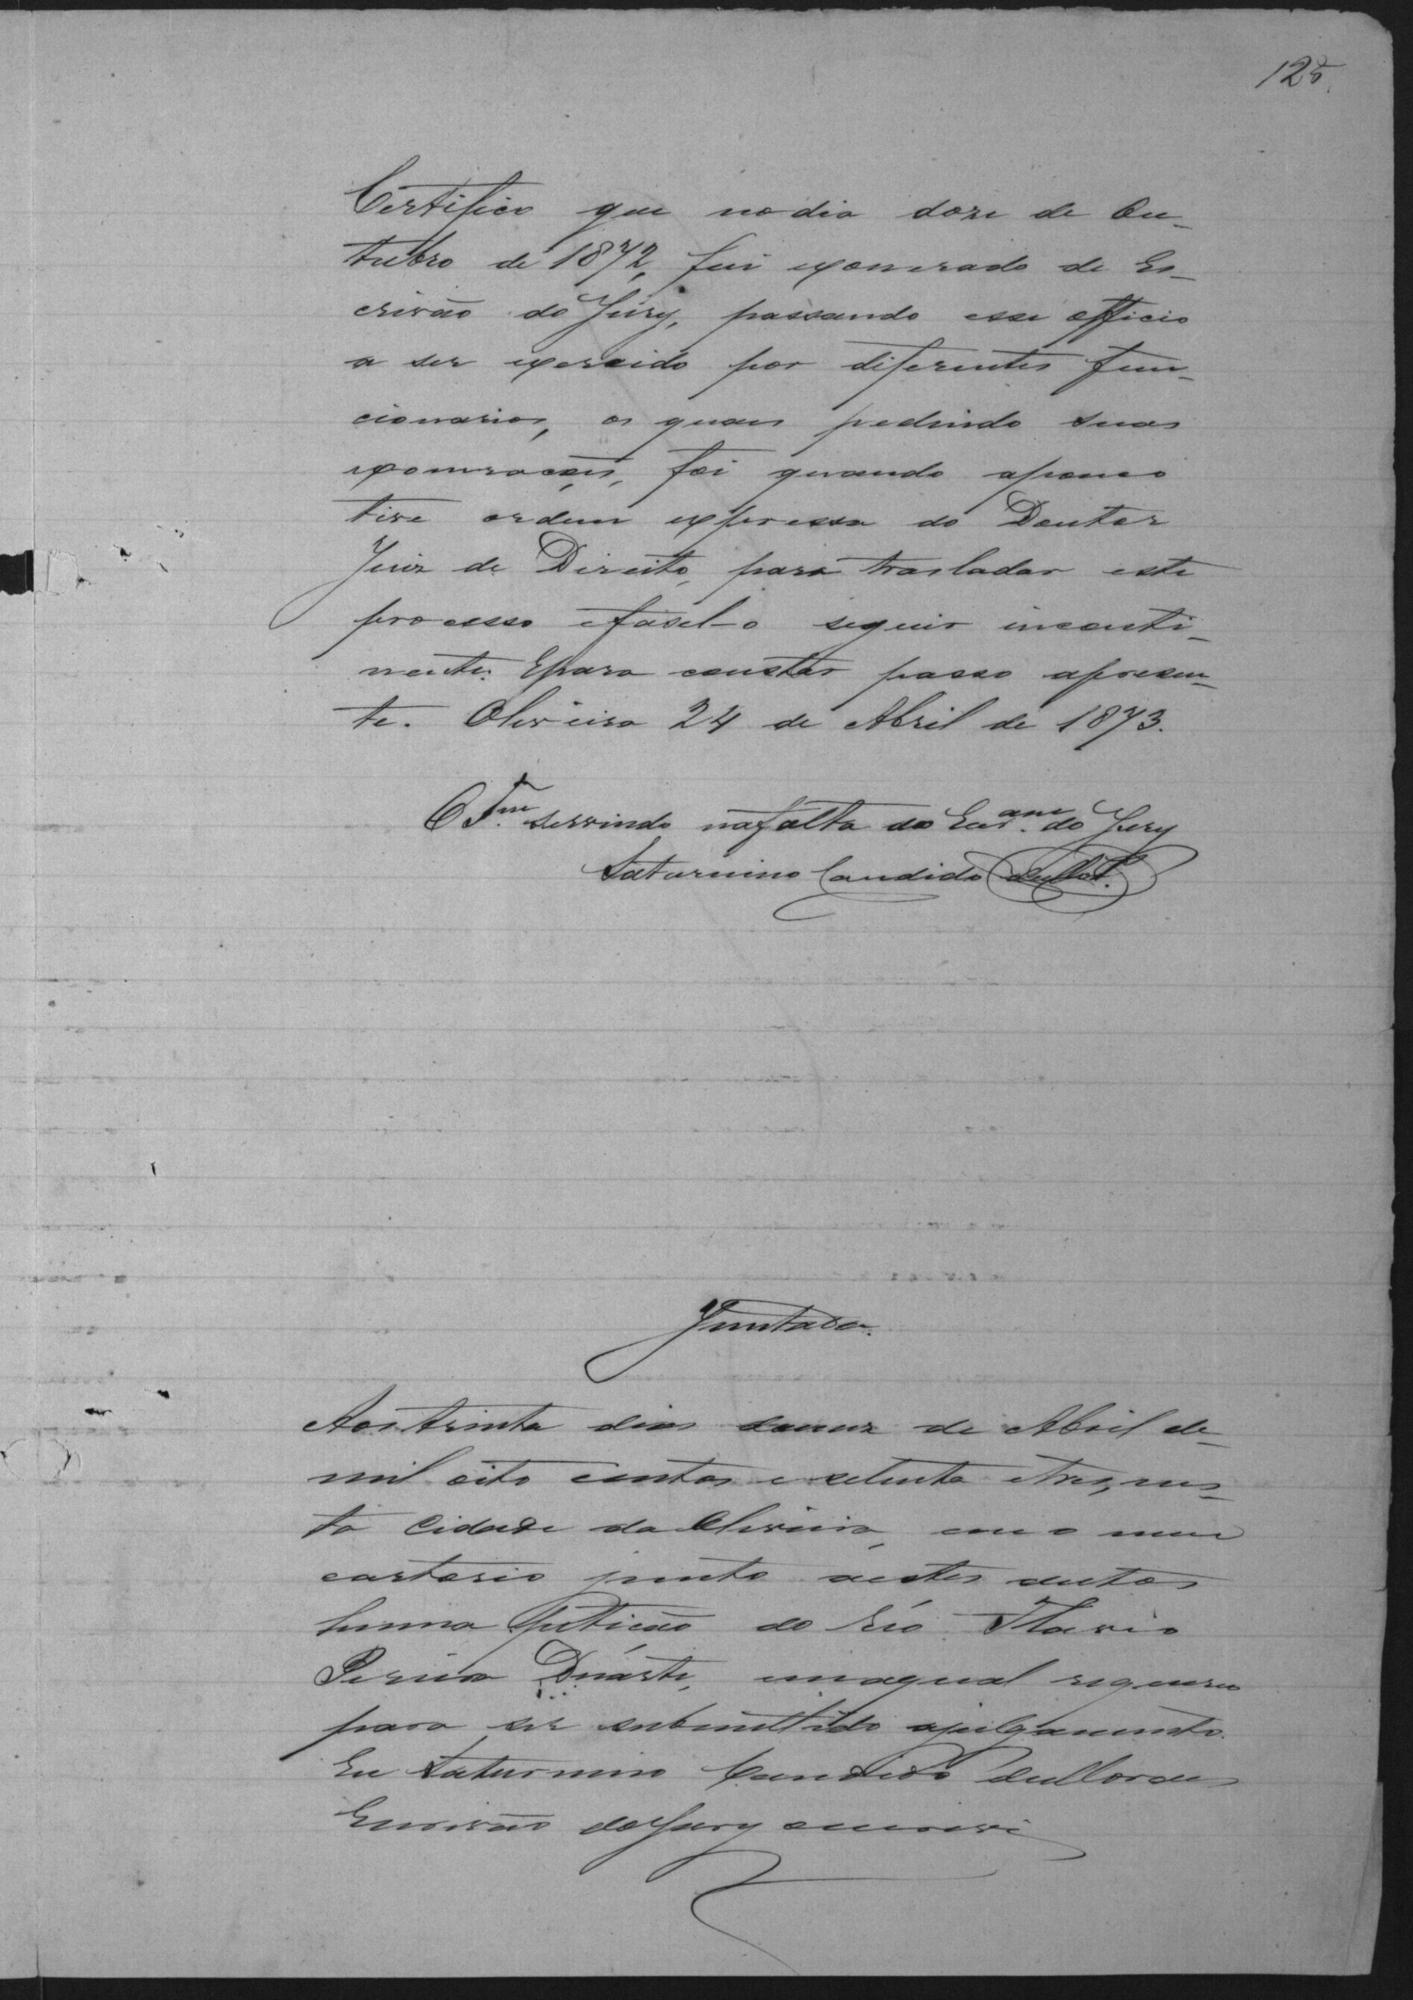 125.
Certifico que no dia doze de Ou-
tubro de 1872, fui exonerado de Es-
crivão do Jury, passando esse officio
a ser exercido por diferentes fun-
cionarios, os quaes pedindo suas
exonerações, foi quando apenas
tive ordem expressa do Doutor
Juiz de Direito, para trasladar este
processo e fasel-o seguir inconti-
nente. E para constar passo apresen-
te. Oliveira 24 de Abril de 1873.
O T.m servindo na falta do Escr.am do Jury
Saturnino Candido
Juntada.
Aos trinta dias do mez de Abril de
mil oito centos e setenta e tres, nes-
ta Cidade da Oliveira, em o meu
cartorio junto a estes autos
huma petição do réo Flavio
Pereira Duarte, em a qual requereu
para ser submettido a julgamento.
Eu Saturnino Candido
Escrivão do Jury o escrevi